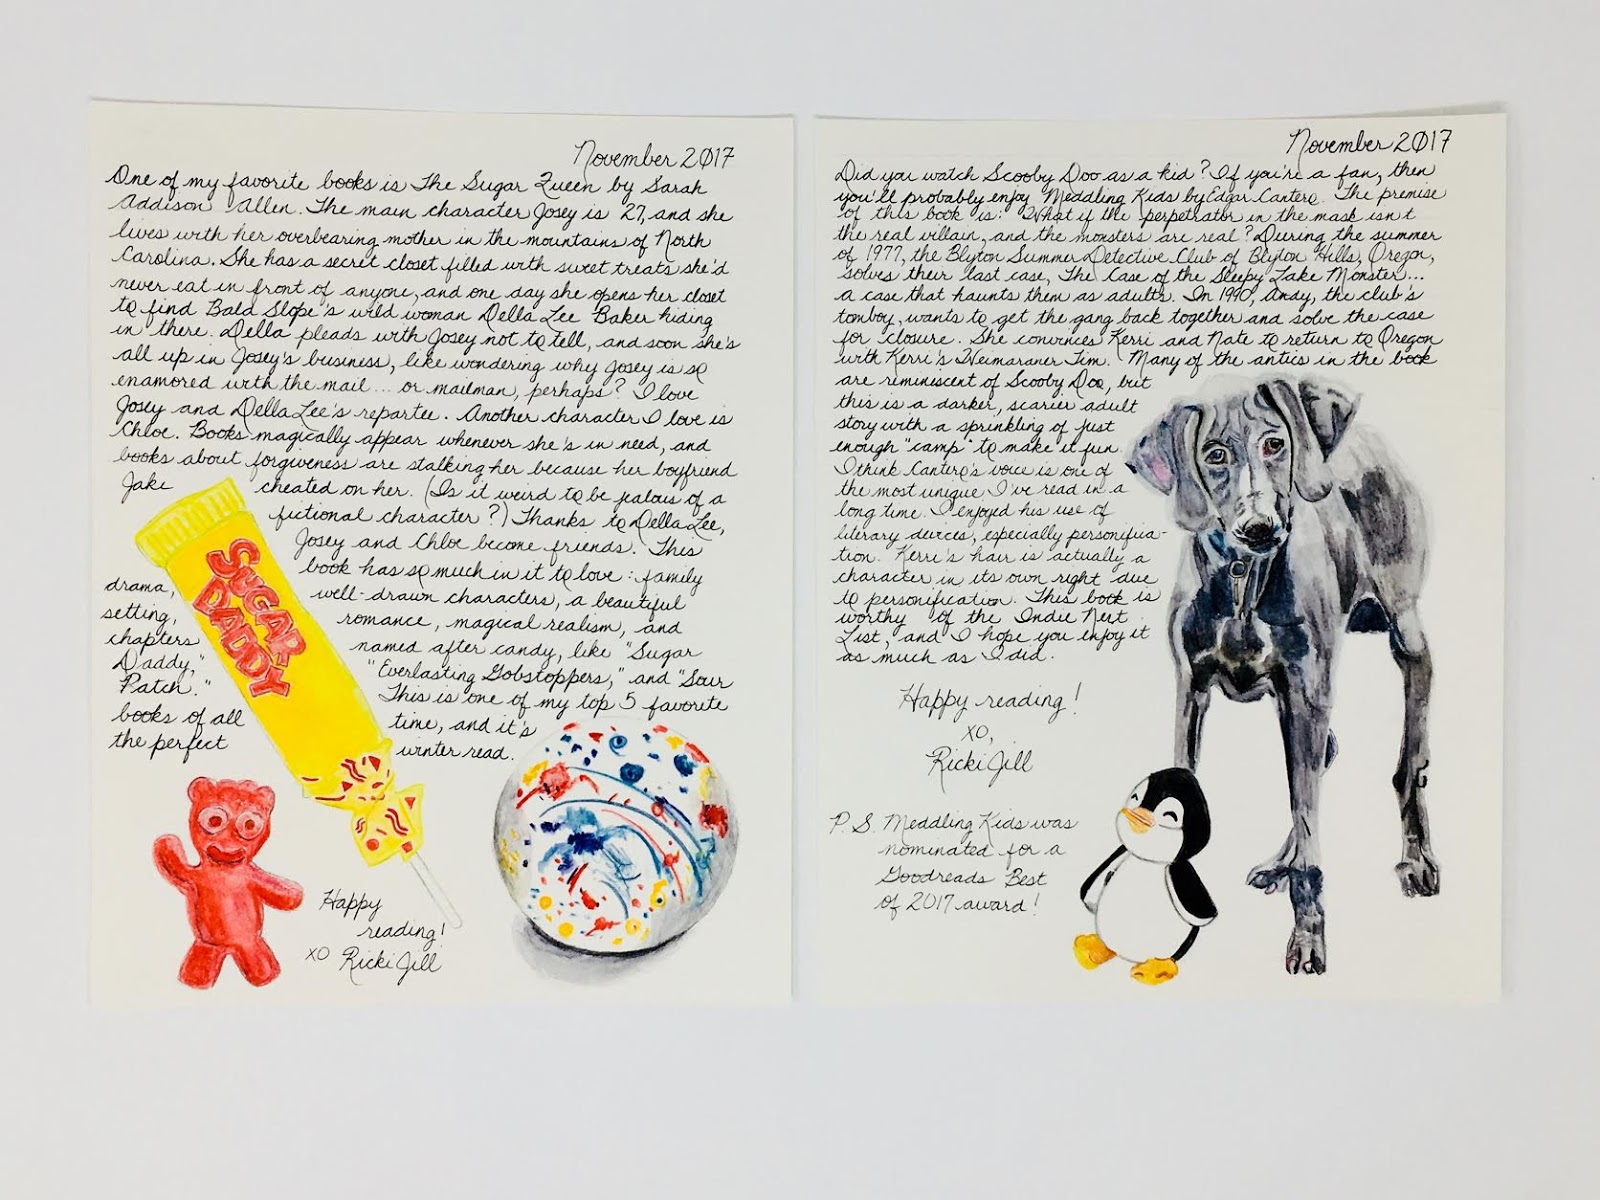 November 2017
One of my favorite books is The Sugar Queen by Sarah
Addison Allen. The main character Josey is 27, and she
lives with her overbearing mother in the mountains of North
Carolina. She has a secret closet filled with sweet treats she'd
never eat in front of anyone, and one day she opens her closet
to find Bald Slope's wild woman Della Lee Baker hiding
in there. Della pleads with Josey not to tell, and soon she's
all up in Josey's business, like wondering why Josey is so
enamored with the mail ... or mailman, perhaps? I love
Josey and Della Lee's repartee. Another character I love is
Chloe. Books magically appear whenever she's in need, and
books about forgiveness are stalking her because her boyfriend
Jake cheated on her. (Is it weird to be jealous of a
fictional character?) Thanks to Della Lee,
Josey and Chloe become friends. This
book has so much in it to love: family
drama, well-drawn characters, a beautiful
setting, romance, magical realism, and
chapters named after candy, like "Sugar
Daddy," "Everlasting Gobstoppers," and "Sour
Patch." This is one of my top 5 favorite
books of all time, and it's
the perfect winter read.
SUGAR
DADDY
Happy
reading!
XO Ricki Jill
November 2017
Did you watch Scooby Doo as a kid? If you're a fan, then
you'll probably enjoy Meddling Kids by Edgar Cantero. The premise
of this book is: What if the perpetrator in the mask isn't
the real villain, and the monsters are real? During the summer
of 1977, the Blyton Summer Detective Club of Blyton Hills, Oregon,
solves their last case, The Case of the Sleepy Lake Monster...
a case that haunts them as adults. In 1990, Andy, the club's
tomboy, wants to get the gang back together and solve the case
for closure. She convinces Kerri and Nate to return to Oregon
with Kerri's Weimaraner Tim. Many of the antics in the book
are reminiscent of Scooby Doo, but
this is a darker, scarier adult
story with a sprinkling of just
enough "camp" to make it fun.
I think Cantero's voice is one of
the most unique I've read in a
long time. I enjoyed his use of
literary devices, especially personifica-
tion. Kerri's hair is actually a
character in its own right due
to personification. This book is
worthy of the Indie Next
List, and I hope you enjoy it
as much as I did.
Happy reading!
XO,
Ricki Jill
P.S. Meddling Kids was
nominated for a
Goodreads Best
of 2017 award!